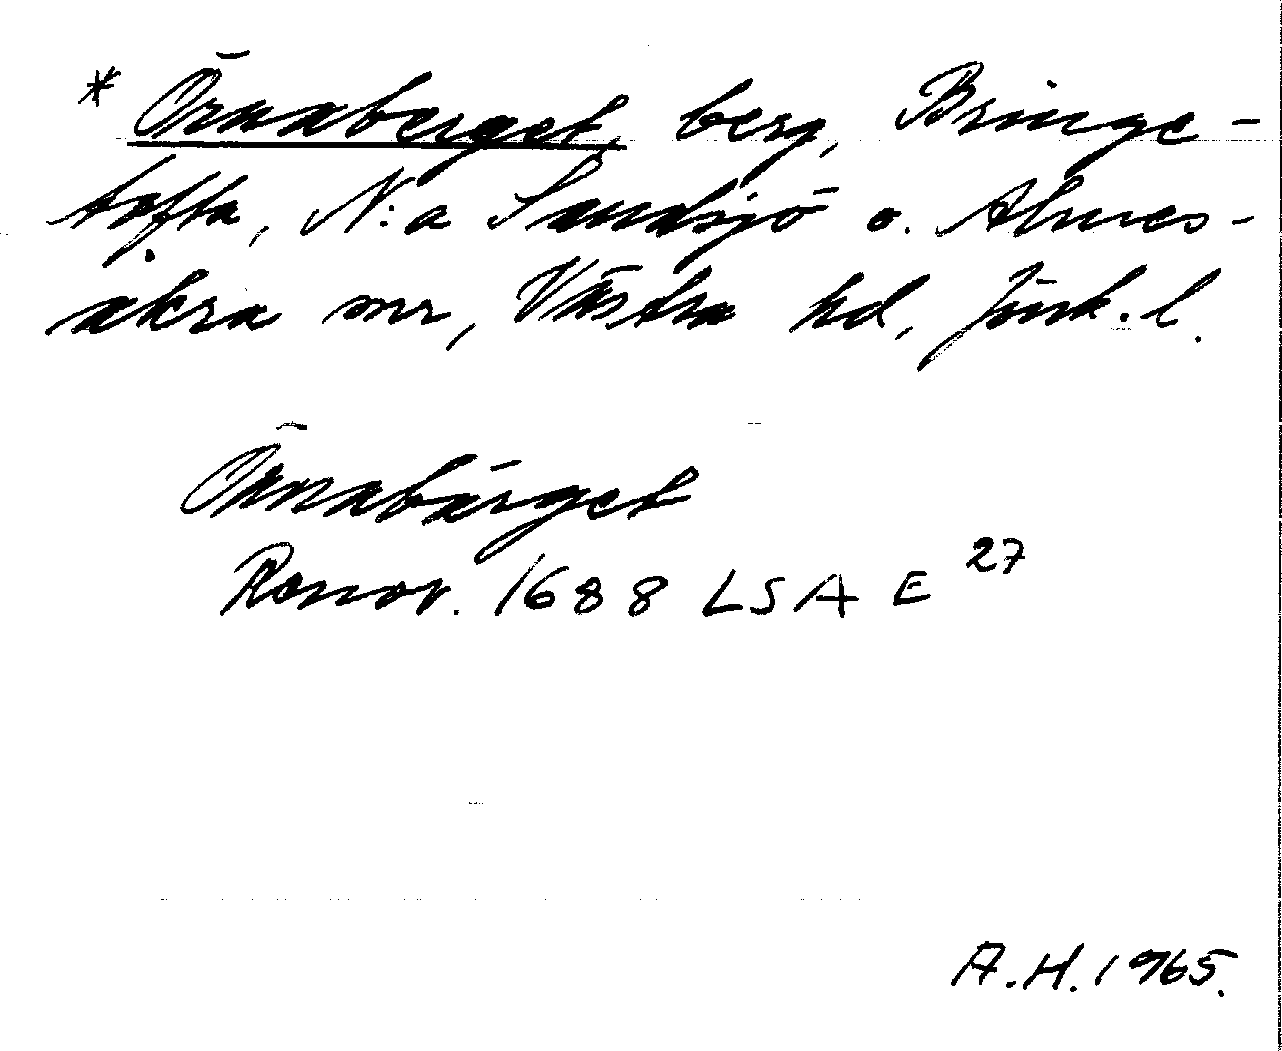 * Örnaberget, berg, Bringe-
tofta, N:a Sandsjö o. Almes-
åkra snr, Västra hd, Jönk. l.
Örnnabärget
Renov. 1688 LSA E 27
A.H. 1965.